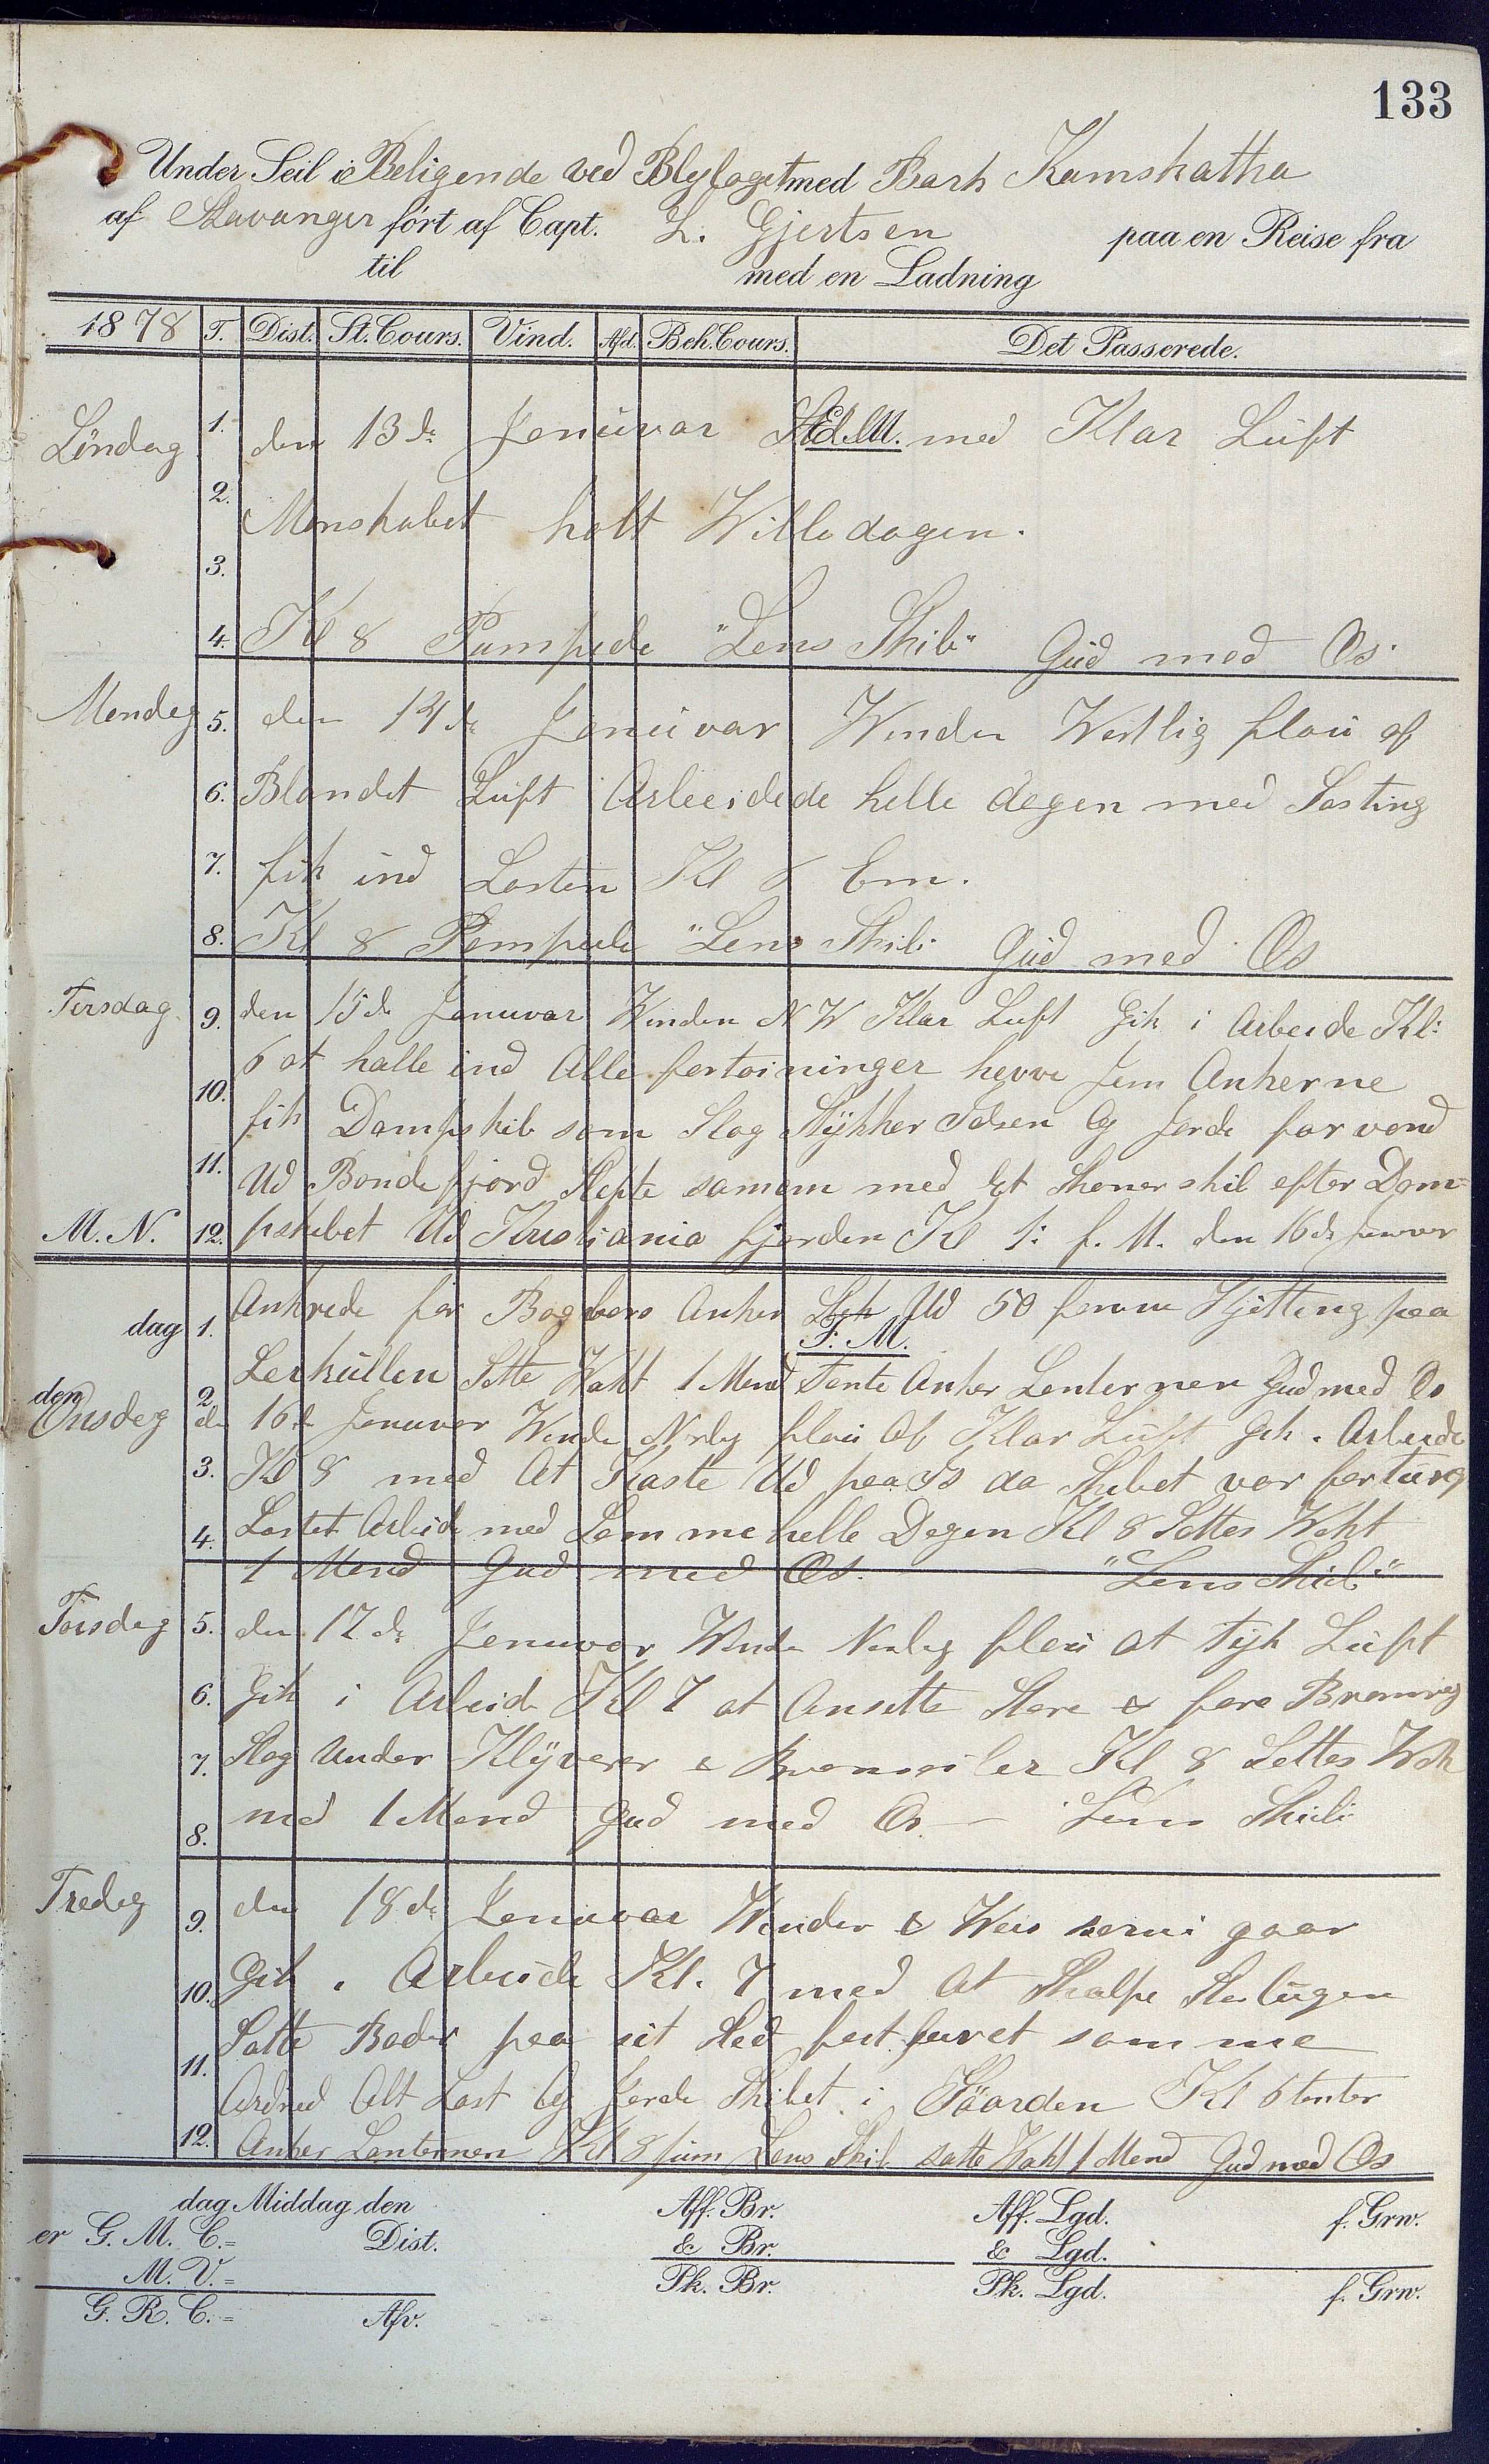 133
Under Seil i Beligende ved Blylaget med Bark Kamskatka
af Stavanger ført af Capt. L. Gjertsen paa en Reise fra
til med en Ladning
1878 T. Dist. St. Cours. Vind. Afd. Beh. Cours. Det Passerede.
Söndag 1. den 13de Januvar E.M. med Klar Luft
2. Manskabet holt Willedagen.
3.
4. Kl 8 Pumpede "Lens Skib" Gud med Os.
Mandag 5. den 14de Januvar Winden Westlig flau af
6. Blandet Luft Arbeidede helle dagen med Lasting
7. fik ind Lasten Kl 8 Em.
8. Kl 8 Pompede "Lens Skib" Gud med Os
Tirsdag 9. den 15de Januvar Winden N W Klar Luft Gik i Arbeide Kl:
6 at halle ind Alle fortøininger hevve Jem Ankerne
10. fik Dampskib som Slog Stÿkker Isen Og Jorde farvand
11. Ud Bondefjord Slepte samem med Et Skonerskib efter Dam=
M. N. 12. pskibet Ud Kristiania fjorden Kl 1: f. M. den 16de Januvar
Ankrede for Bagbors Anker Stek Ud 50 favne Kjitting paa
dag 1. F. M.
Lerkullen Sette Wakt 1 Mand Tente Anker Lanternen Gud med Os
den 2.
Onsdag den 16de Januvar Winden Norlig flau Af Klar Luft Gik i Arbeide
3. Kl 8 med At Kaste Ud paa Is da Skibet var for tung
4. Lastet Arbeide med Samme helle Dagen Kl 8 Settes Wakt
1 Mand Gud med Os. "Lens Skib"
Torsdag 5. den 17de Januvar Winden Norlig flau at Tyk Luft
6. Gik i Arbeide Kl 7 at Ansette Store & fore Bramrig
7. Slog Under Klÿverer & Bramseiler Kl 8 Settes Wak
8. med 1 Mand Gud med Os — Lens Skib
Fredag 9. den 18de Januvar Winden & Weir somi gaar
10. Gik i Arbeide Kl. 7 med At Skalpe Storlugen
Satte Baader paa sit Sted fast surret samme
11. Ordned Alt Last Og Jorde Skibet i Söorden Kl 6 tenter
12. Anker Lanternen Kl 8 pum Lens Skib satte Wakt 1 Mand Gud med Os
dag Middag den Aff. Br. Aff. Lgd. f. Grw.
er G. M. C.= Dist. & Br. & Lgd.
M. V.= Pk. Br. Pk. Lgd. f. Grw.
G. R. C.= Afv.